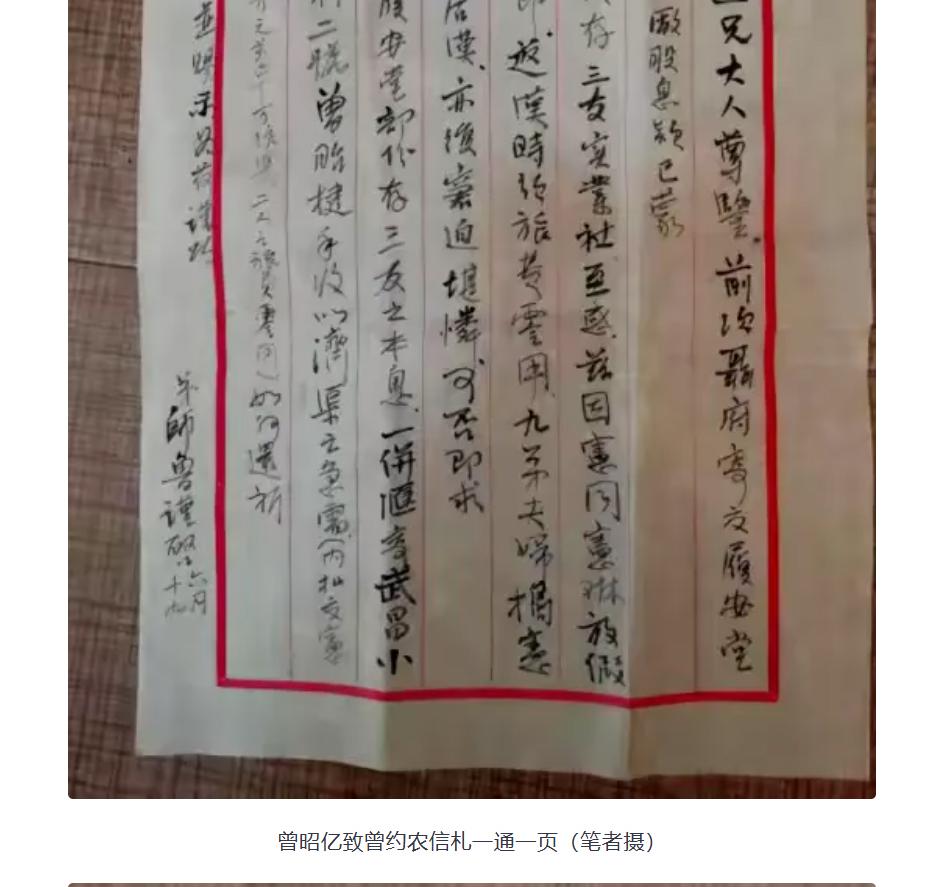 兄大人尊鑒。前次聶府寄交履安堂
廠股息欵已蒙
存三友實業社互惠。茲因憲同憲琳放假
即返漢時給旅費零用。九弟夫婦攜憲
居漢、亦後窘迫堪憐。可否即求
履安堂部份存三友之本息、一併匯寄武昌小
二號曾昭揵手收以濟渠之急需（內拟交憲
二人之旅費零用）如何還祈
並賜示
弟師魯謹啟 六月十九
曾昭亿致曾约农信札一通一页（笔者摄）